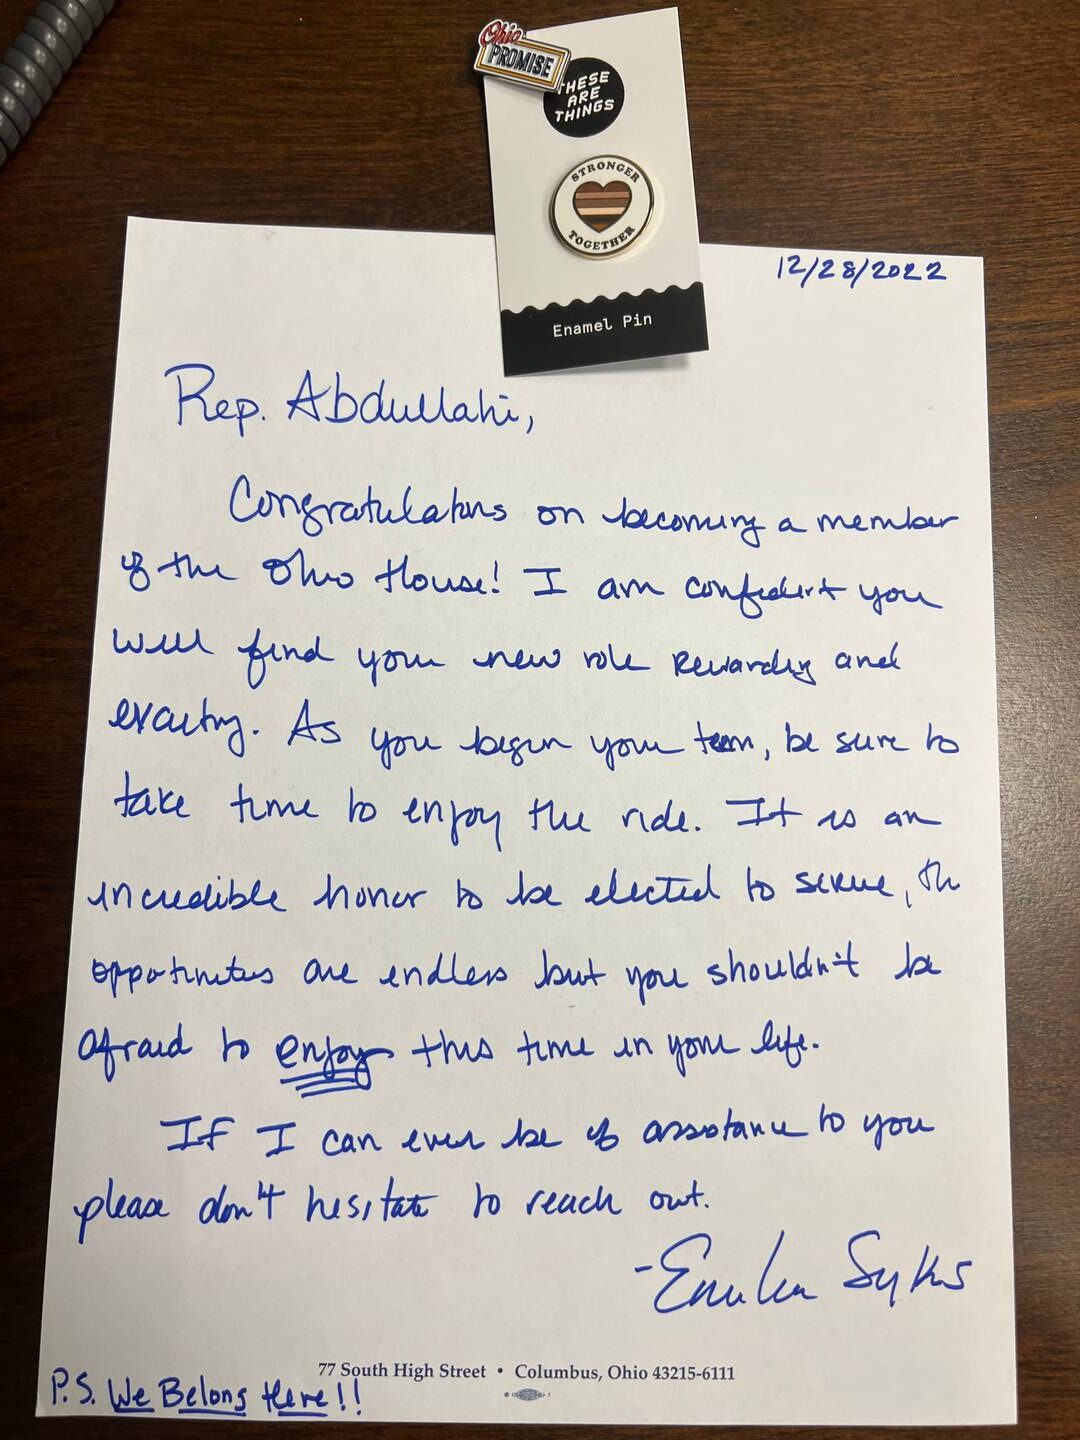 Ohio
PROMISE
THESE
ARE
THINGS
STRONGER
TOGETHER
Enamel Pin
12/28/2022
Rep. Abdullahi,
Congratulations on becoming a member
of the Ohio House! I am confident you
will find your new role rewarding and
exciting. As you begin your term, be sure to
take time to enjoy the ride. It is an
incredible honor to be elected to serve, the
opportunities are endless but you shouldn't be
afraid to enjoy this time in your life.
If I can ever be of assistance to you
please don't hesitate to reach out.
-Emilia Sykes
77 South High Street • Columbus, Ohio 43215-6111
P.S. We Belong Here!!